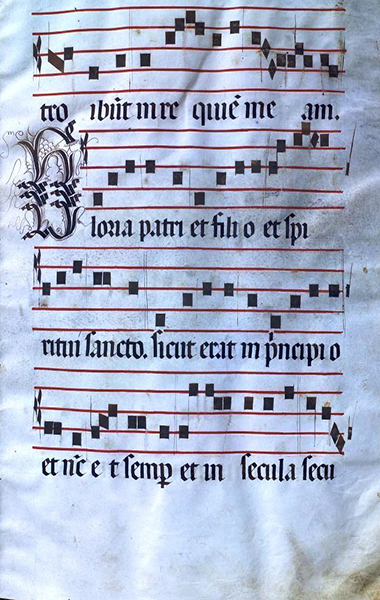 tro ibũt in re quiẽ me am.
Gloria patri et fili o et spi
ritui sancto. sicut erat in p̃ncipi o
et nc̃ e t semꝑ et in secula secu